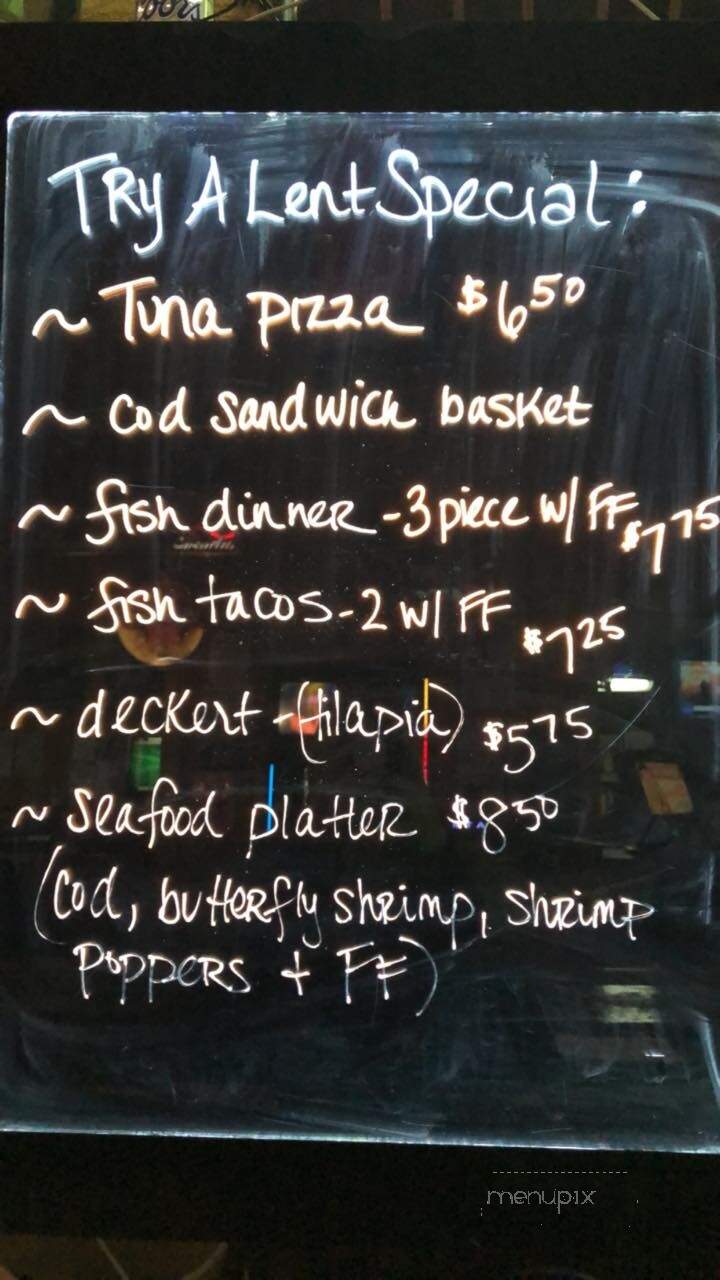 Try A Lent Special:
~ Tuna pizza $6.50
~ cod sandwich basket
~ fish dinner - 3 piece w/ FF $7.75
~ fish tacos - 2 w/ FF $7.25
~ deckert - (tilapia) $5.75
~ seafood platter $8.50
(cod, butterfly shrimp, shrimp
poppers + FF)
menupix